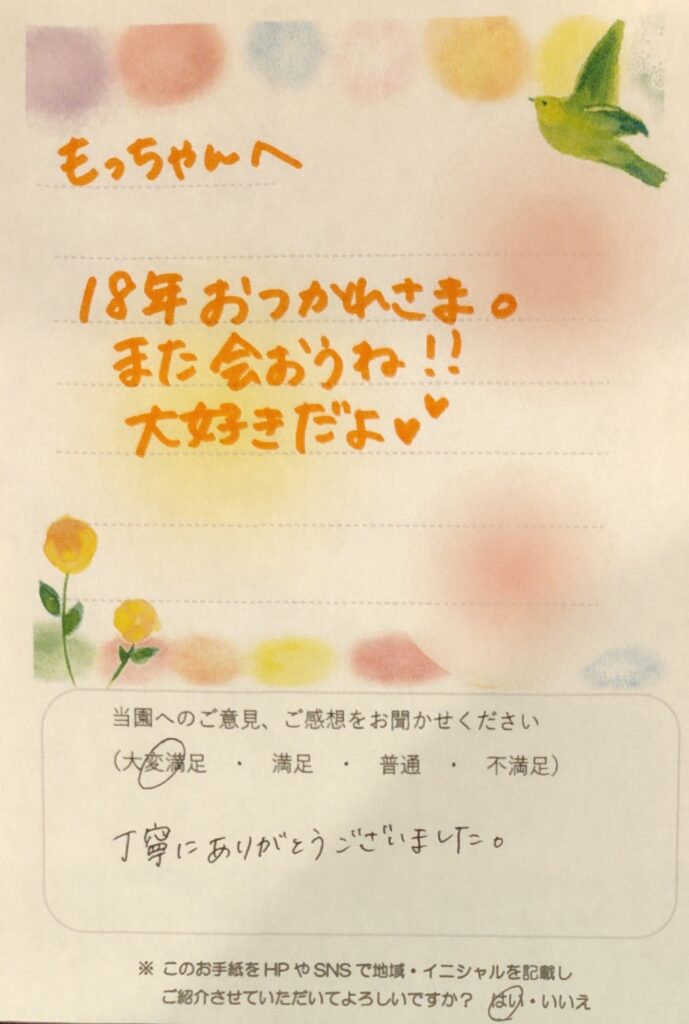 もっちゃんへ
18年おつかれさま。
また会おうね!!
大好きだよ♥♥
当園へのご意見、ご感想をお聞かせください
(大変満足 ・ 満足 ・ 普通 ・ 不満足)
丁寧にありがとうございました。
※ このお手紙をHPやSNSで地域・イニシャルを記載し
ご紹介させていただいてよろしいですか? はい・いいえ